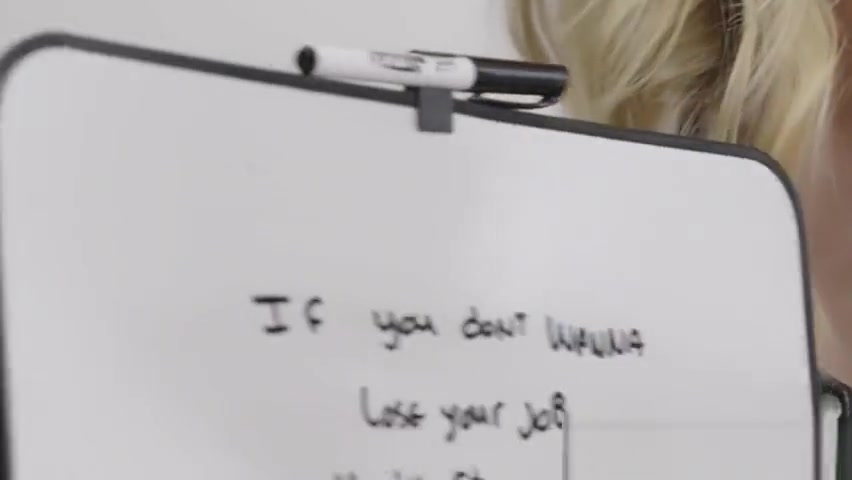 If you dont WANNA
Lose your JOB